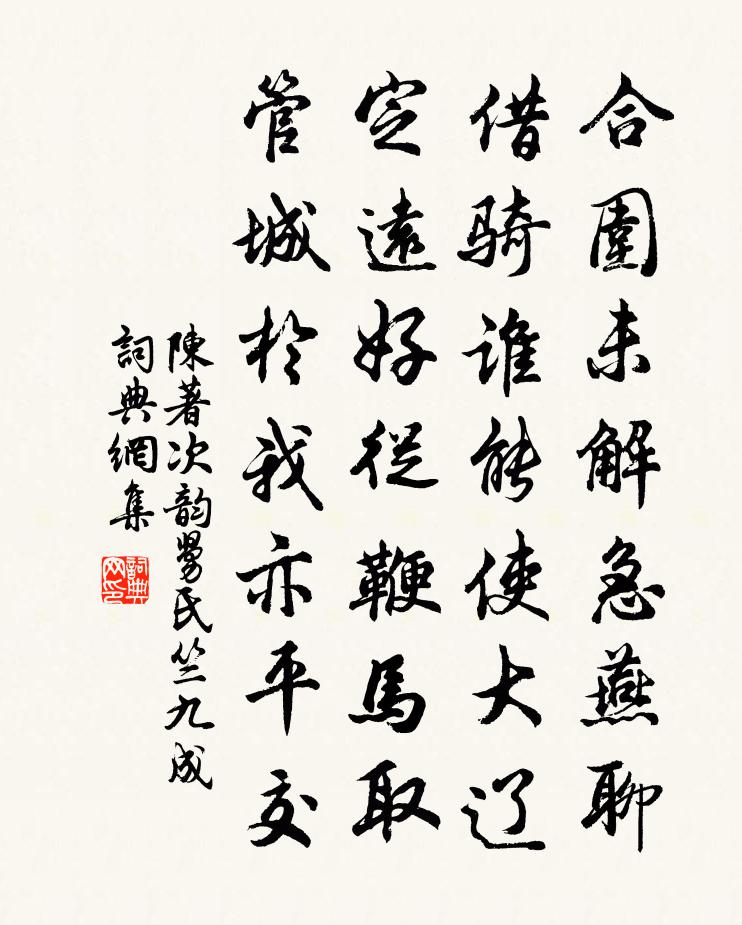 合圍未解急燕聊
借騎誰能使大辽
定遠好從鞭馬取
管城於我亦平交
陳著次韵舅氏竺九成
詞典網集
詞典网印